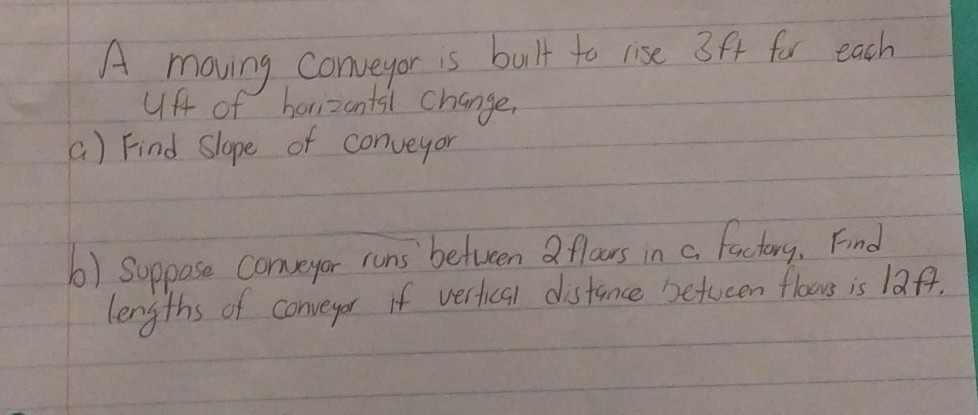 A moving conveyor is built to rise 3ft for each
4ft of horizontal change.
a) Find slope of conveyor
b) Suppose conveyor runs between 2 floors in a factory. Find
lengths of conveyor if vertical distance between floors is 12ft.